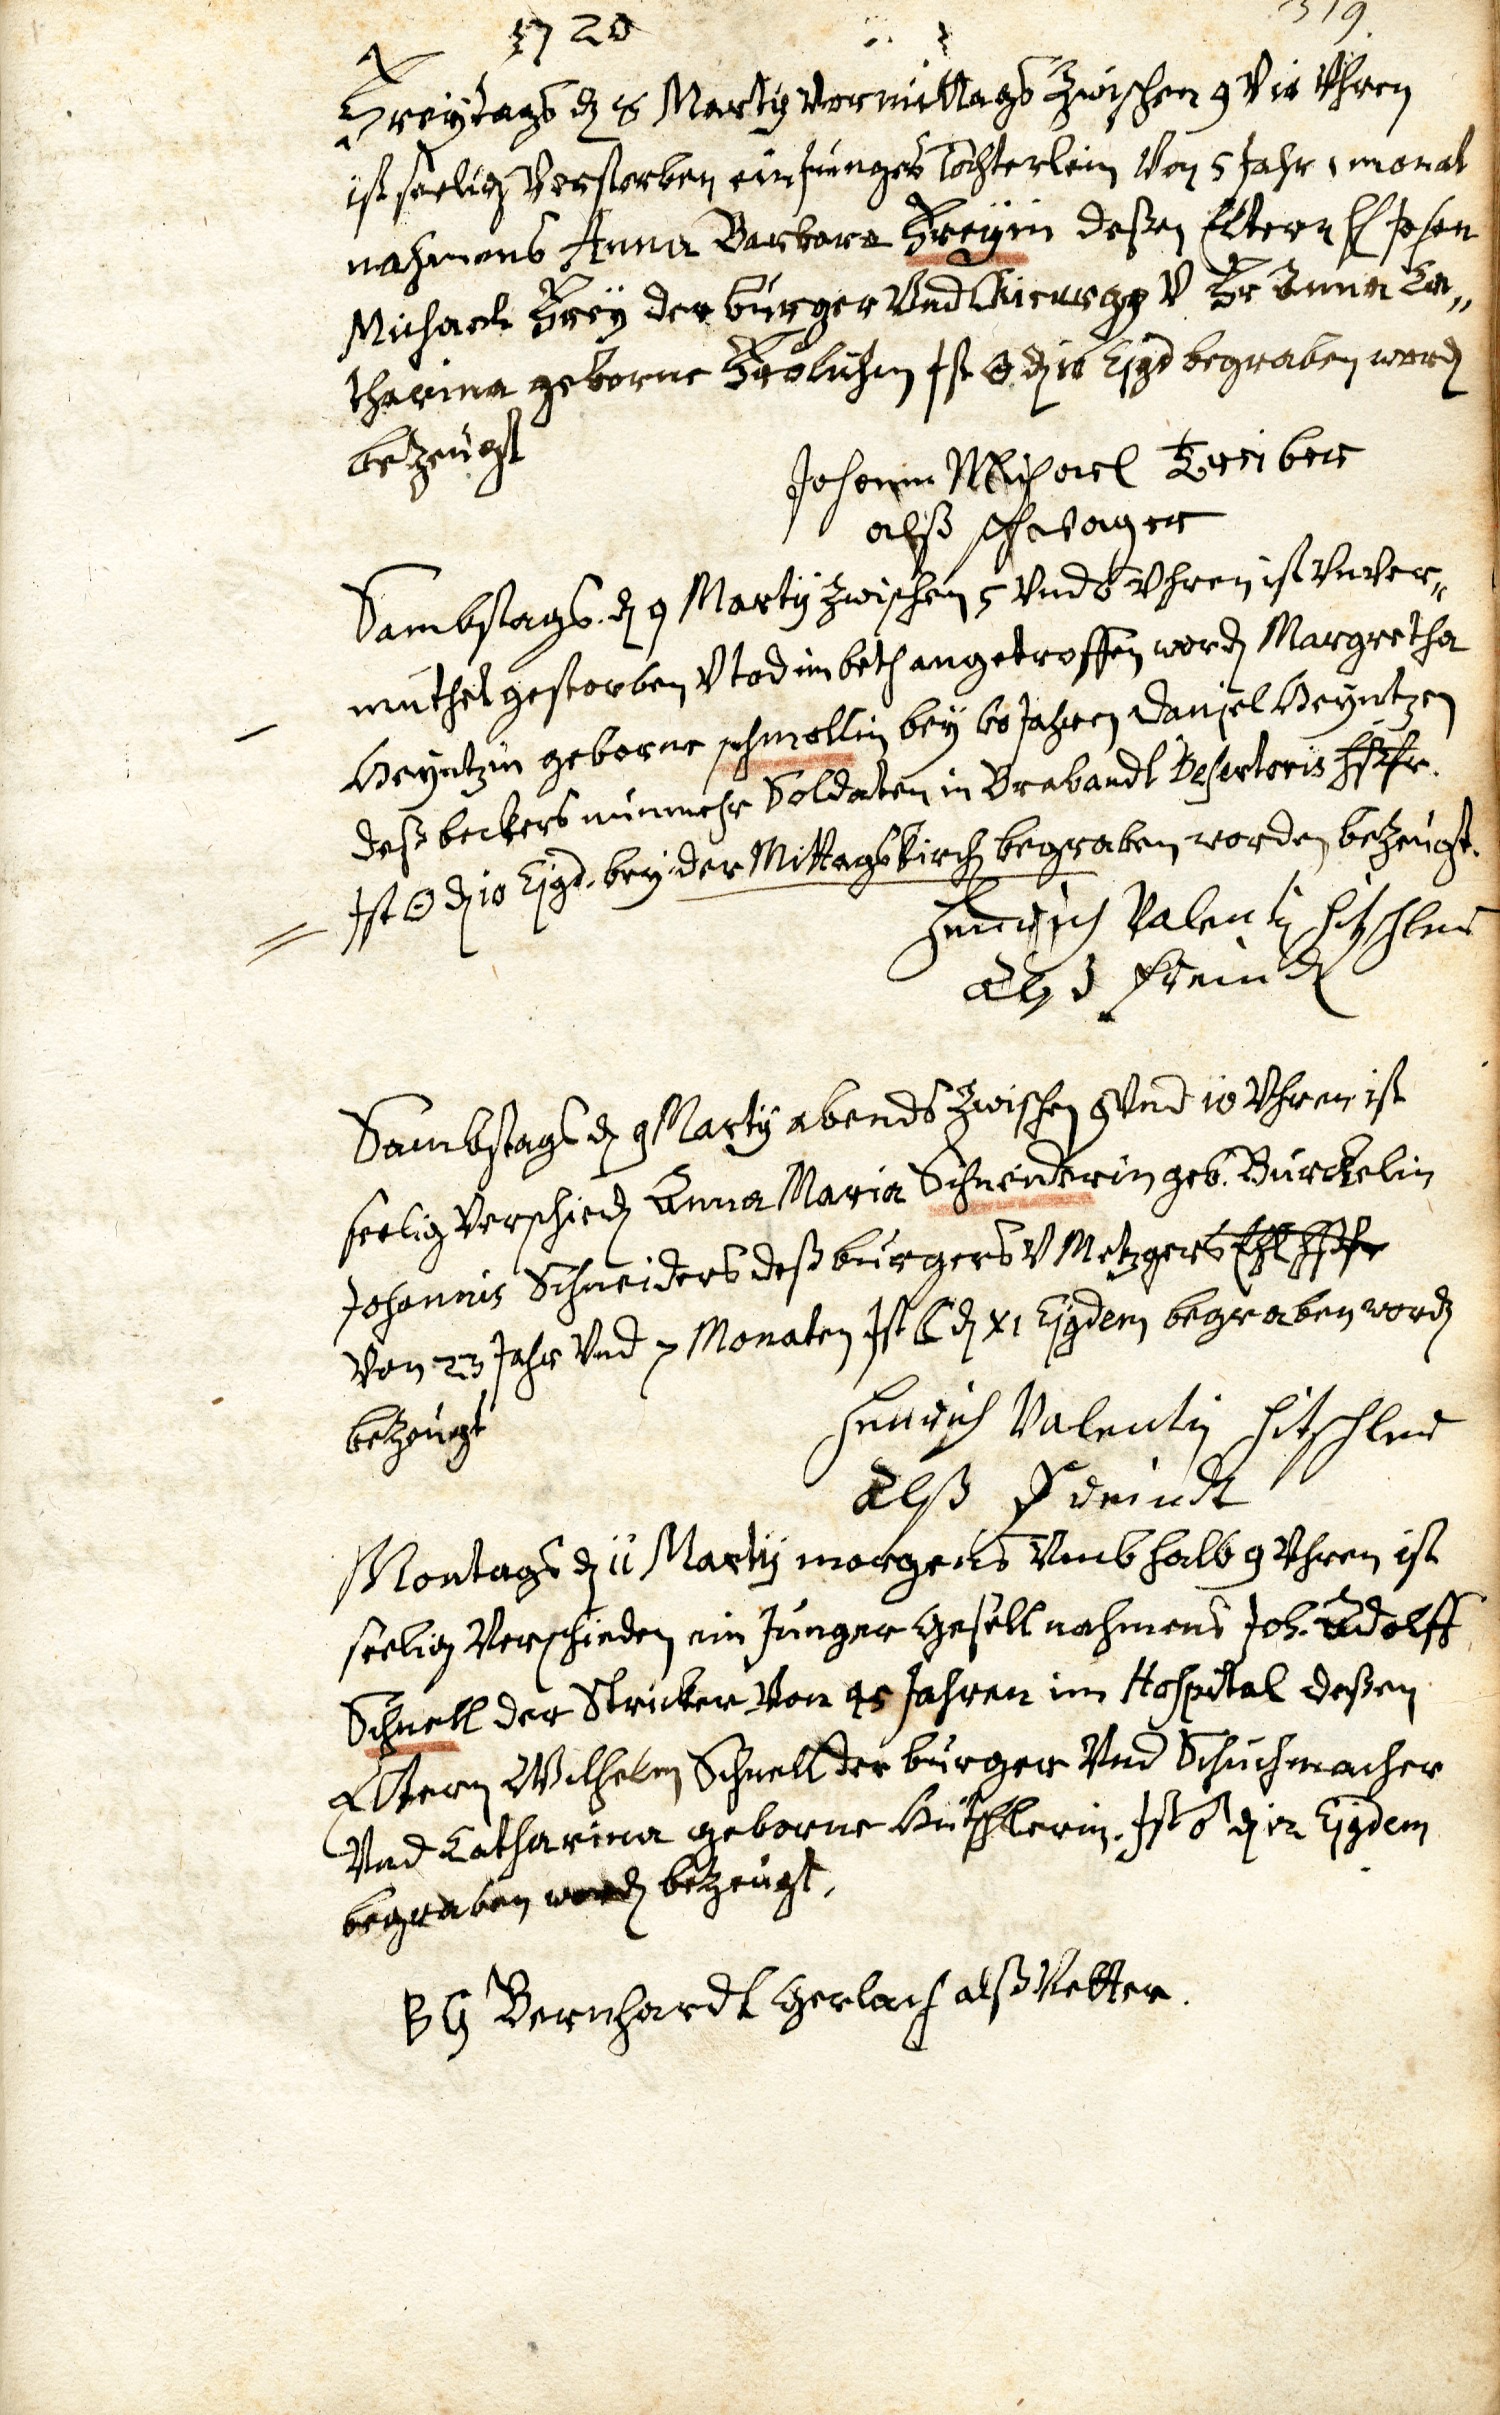 1720 319.
Freytags dẽ 8 Martij Vormittags Zwischen 9 V 10 Uhren
ist seelig Verstorben ein Junges Töchterlein Von 5 Jahr 1 monat
nahmens Anna Barbara Freyin deßen Eltern H Johan
Michael Frey der burger Und Chirurgg V Fr Anna Ca„
tharina geborne Frölichin Ist ☉ dẽ 10 Ejgd begraben word
betzeugt
Johann Michael Treiber
alß schwager
Sambstags dẽ 9 Martij Zwischen 5 Und 6 Uhren ist Unver„
muthet gestorben V tod im beth angetroffen word Margretha
Heyntzin geborne schmollin bey 60 Jahren Daniel Heyntzen
deß beckers nunmehr Soldaten in Brabandt Desertoris Hsfr.
Ist ☉ dẽ 10 Ejgd. bey der Mittagskirch begraben worden betzeugt.
Henrich Valentin Hitschler
Alß Freindt
Sambstags dẽ 9 Martij abends Zwischen 9 Und 10 Uhren ist
seelig Verschied Anna Maria Schneiderin geb. Bürckelin
Johannis Schneiders deß burgers V Metzgers Ehl Hsfr
Von 23 Jahr Und 7 Monaten Ist ☾ dẽ XI Ejgdem begraben word
betzeugt
Henrich Valentin Hitschler
Alß Freindt
Montags dẽ 11 Martij morgens Umb halb 9 Uhren ist
seelig Verschieden ein Junger Gesell nahmens Joh. Adolff
Schnell der Stricker Von 45 Jahren im Hospital deßen
Eltern Wilhelm Schnell der burger Und Schuhmacher
Und Catharina geborne Hütschlerin. Ist ♂ dẽ 12 Ejgdem
begraben word betzeugt,
BG Bernhardt Gerlach alß Vetter.